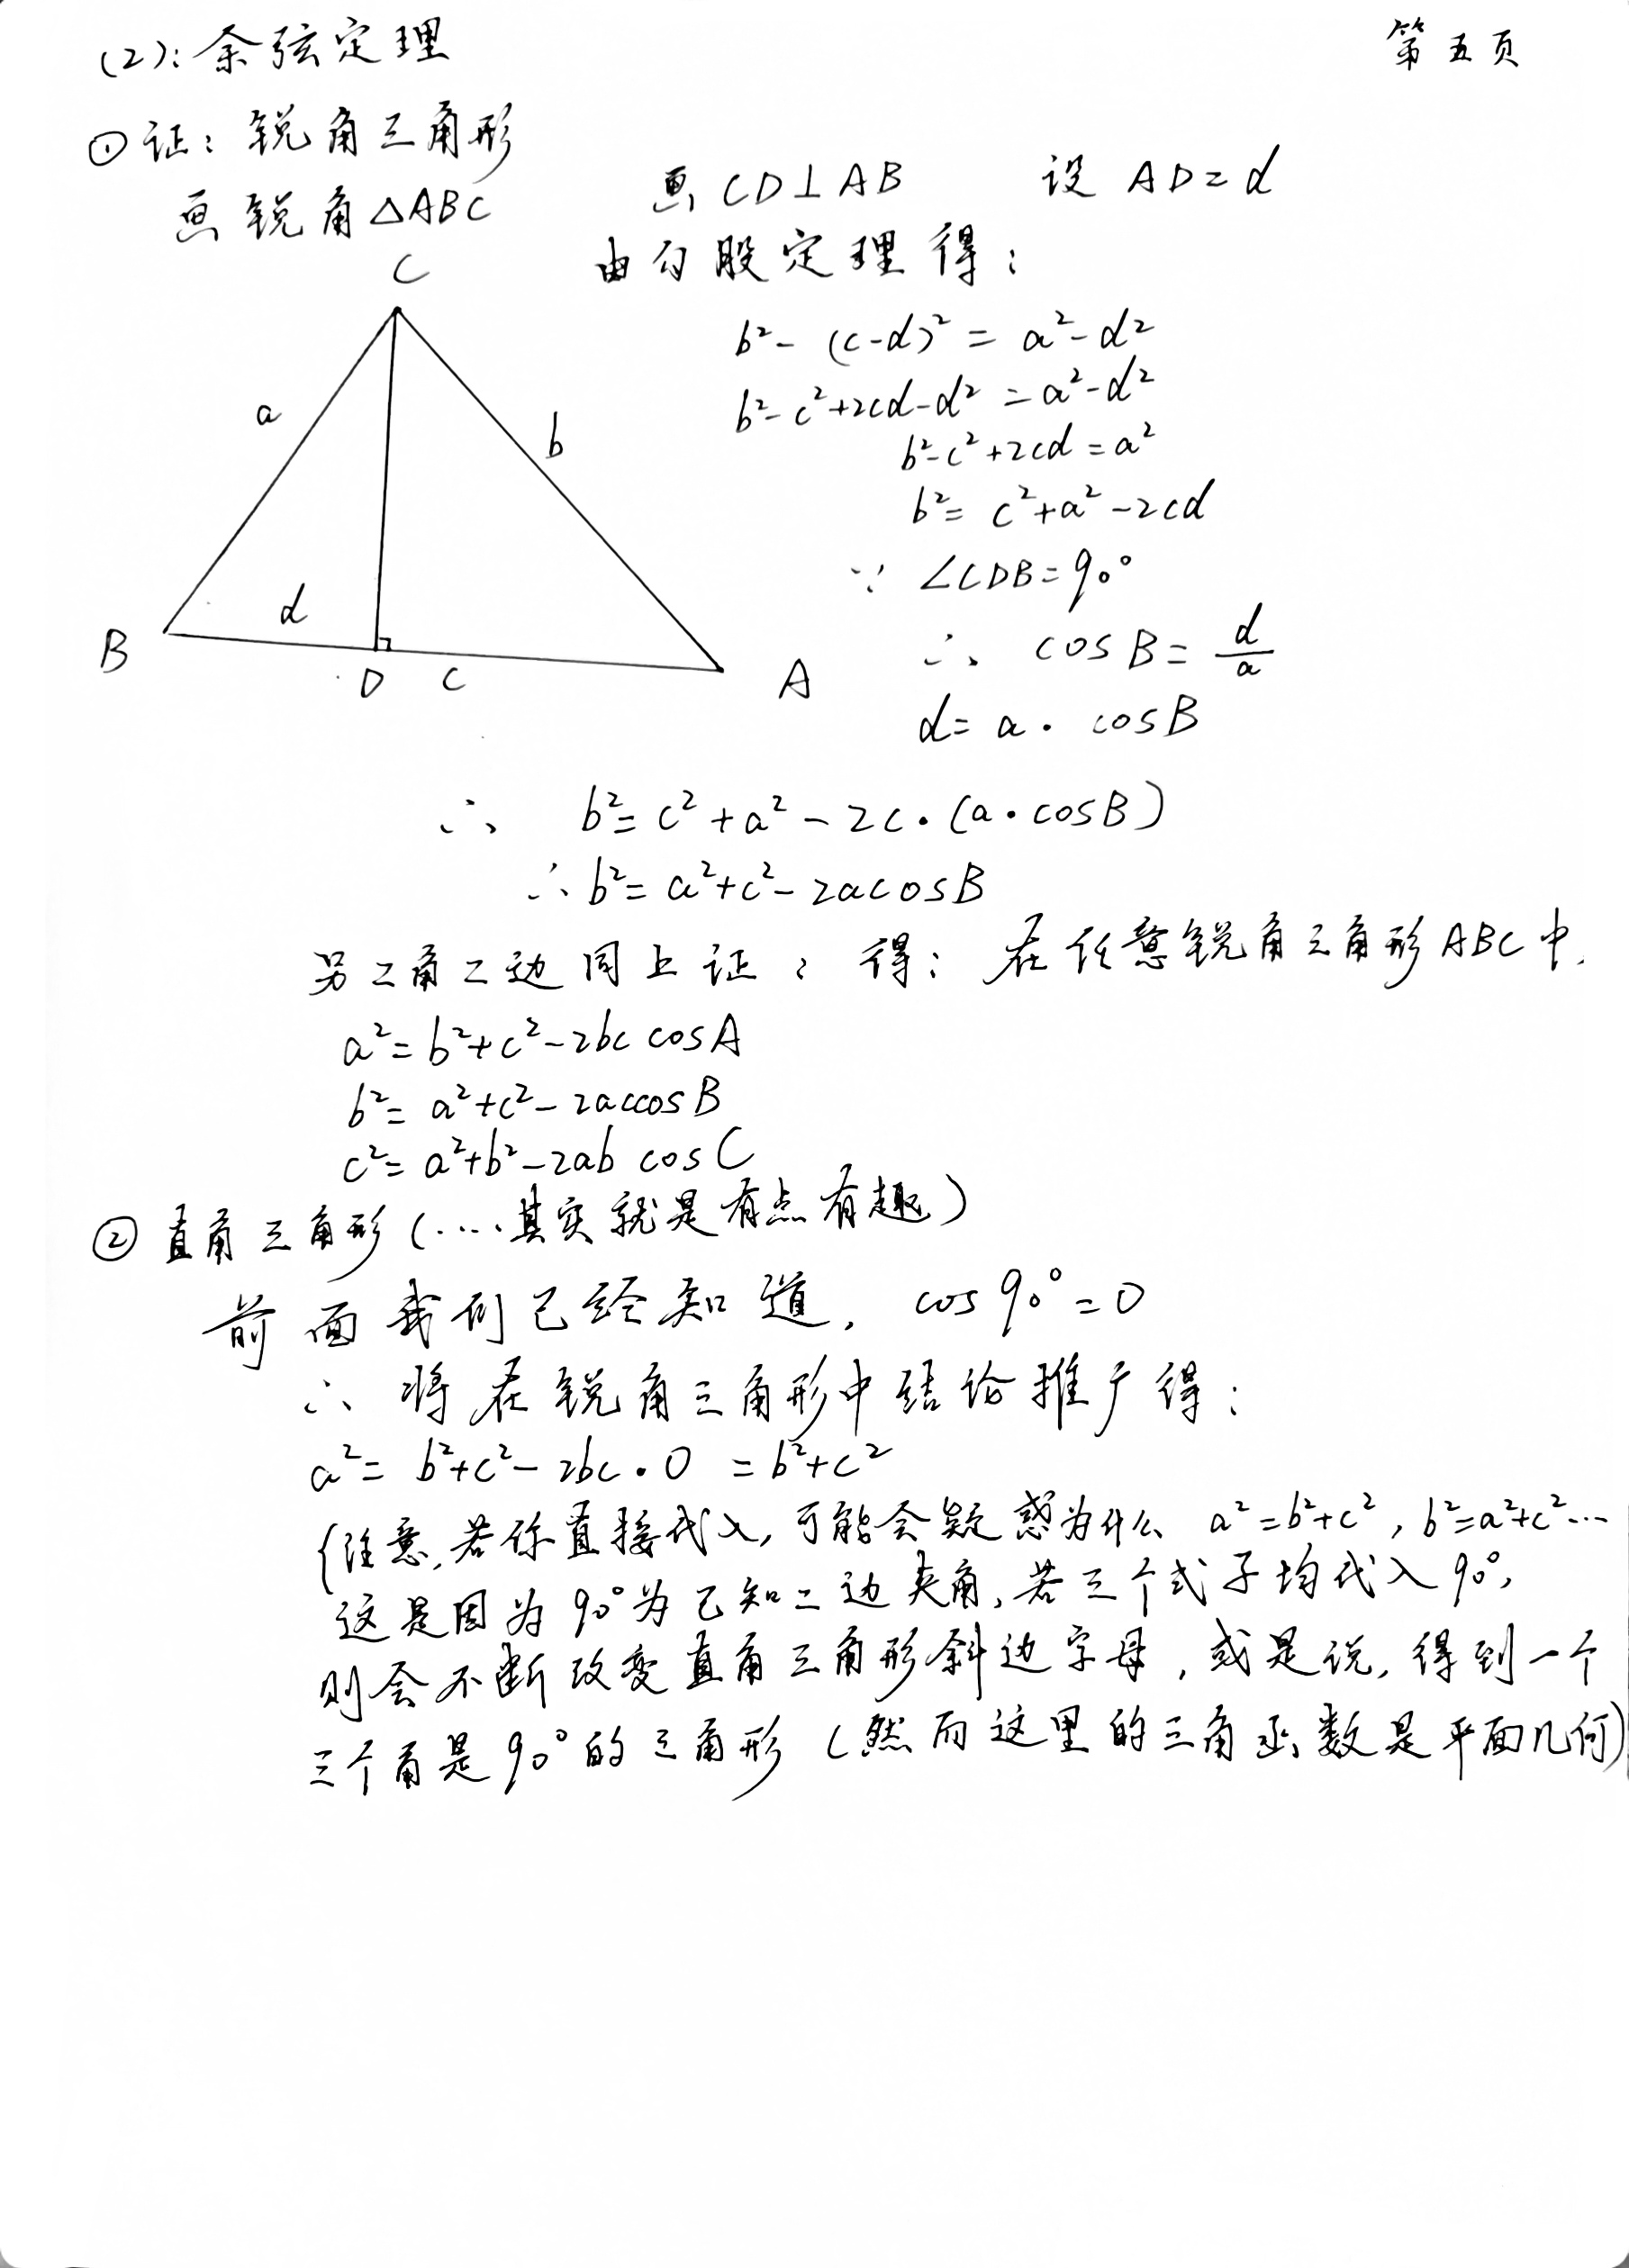 (2): 余弦定理
第五页
①证: 锐角三角形
画锐角△ABC
画CD⊥AB 设 AD=d
由勾股定理得:
C
a
b
d
B
D
c
A
b²-(c-d)²=a²-d²
b²-c²+2cd-d²=a²-d²
b²-c²+2cd=a²
b²=c²+a²-2cd
∵ ∠CDB=90°
∴ cosB=d/a
d=a·cosB
∴ b²=c²+a²-2c·(a·cosB)
∴b²=a²+c²-2acosB
另二角二边同上证, 得: 在任意锐角三角形ABC中,
a²=b²+c²-2bc cosA
b²=a²+c²-2accosB
c²=a²+b²-2ab cosC
②直角三角形(…其实就是有点有趣)
前面我们已经知道, cos90°=0
∴ 将在锐角三角形中结论推广得:
a²=b²+c²-2bc·0 =b²+c²
{注意,若你直接代入,可能会疑惑为什么 a²=b²+c², b²=a²+c²…
这是因为90°为已知二边夹角,若三个式子均代入90°,
则会不断改变直角三角形斜边字母,或是说,得到一个
三个角是90°的三角形(然而这里的三角函数是平面几何)